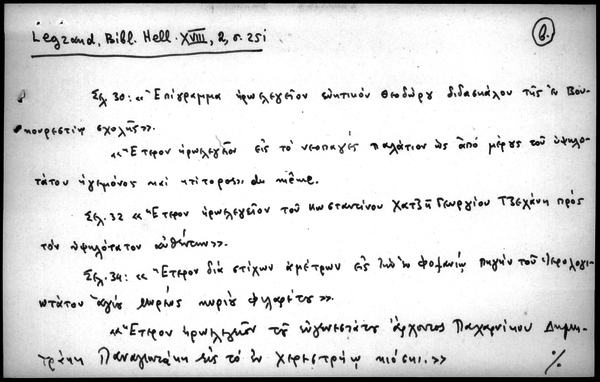 Legrand, Bibl. Hell. XVIII, 2, σ. 25i
β.
Σελ. 30: «Ἐπίγραμμα ἡρωελεγεῖον εὐκτικόν Θεοδώρου διδασκάλου τῆς ἐν Βου-
κουρεστίῳ σχολῆς».
«Ἕτερον ἡρωελεγεῖον εἰς τό νεοπαγές παλάτιον ὡς ἀπό μέρους τοῦ ὑψηλο-
τάτου ἡγεμόνος καί κτίτορος» du même.
Σελ. 32 «Ἕτερον ἡρωελεγεῖον τοῦ Κωσταντίνου Χατζῆ Γεωργίου Τζεχάνη πρός
τόν ὑψηλότατον αὐθέντην».
Σελ. 34: «Ἕτερον διά στίχων ἀμέτρων εἰς τήν ἐν Φοξανίῳ πηγήν τοῦ ἱερολογι-
ωτάτου ἁγίου κυρίου Φιλαρέτου».
«Ἕτερον ἡρωελεγεῖον τοῦ εὐγενεστάτου ἄρχοντος Παχαρνίκου Δημη-
τράκη Παναγιωτάκη εἰς τό ἐν Χερεστρέῳ κιόσκι.»
%